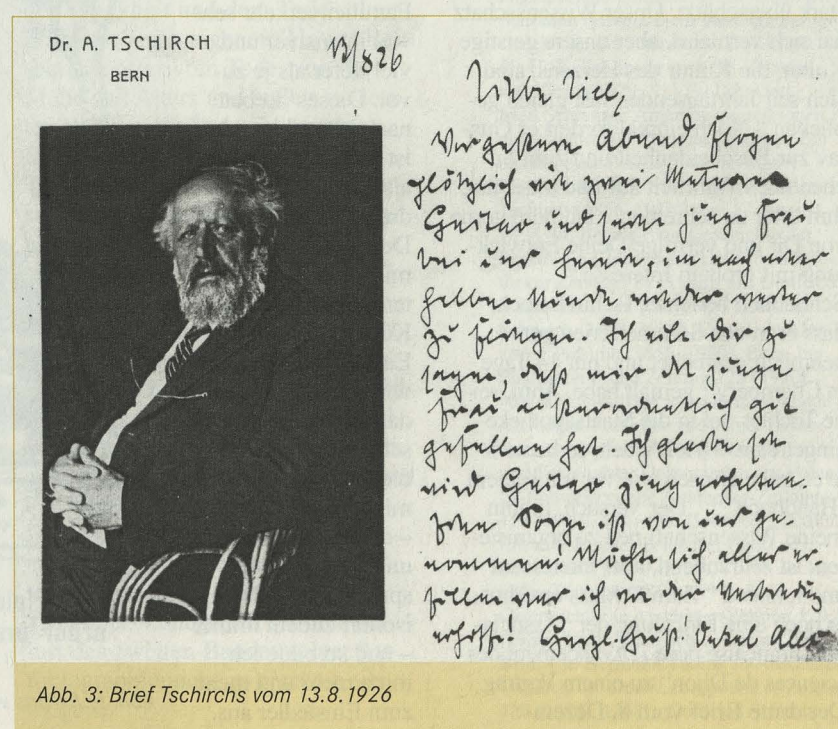 Dr. A. TSCHIRCH
BERN
13/8 26
Liebe
Vorgestern Abend flogen
plötzlich wie zwei Meteore
Gustav und seine junge Frau
bei uns herein, um nach einer
halben Stunde wieder weiter
zu fliegen. Ich eile dir zu
sagen, daß mir die junge
Frau außerordentlich gut
gefallen hat. Ich glaube sie
wird Gustav jung erhalten.
Sorge ist von uns ge-
nommen! Möchte sich alles er-
füllen was ich von der Verbindung
erhoffe! Herzl. Gruß. Onkel Alex
Abb. 3: Brief Tschirchs vom 13.8.1926